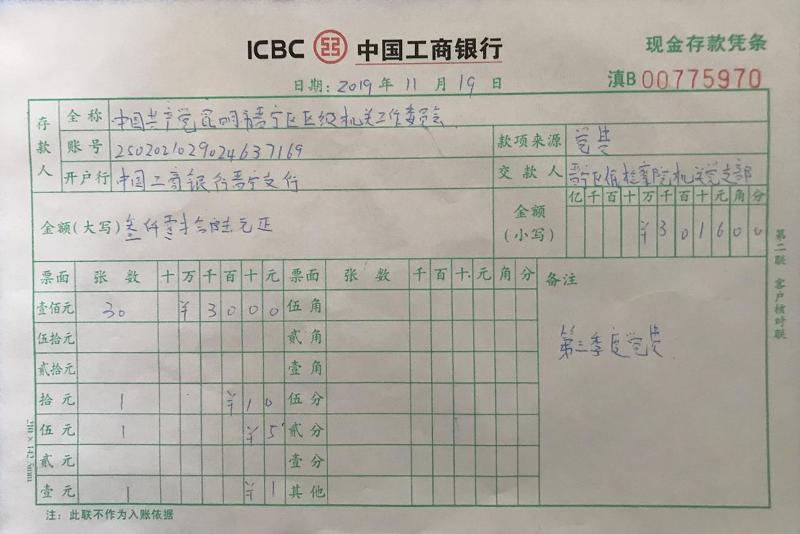 ICBC 中国工商银行
现金存款凭条
日期：2019 年 11 月 19 日
滇B 00775970
存款人
全 称 中国共产党昆明市晋宁区区级机关工作委员会
账 号 2502021029024637169
开户行 中国工商银行晋宁支行
款项来源 党费
交 款 人 晋宁区人民检察院机关党支部
金额(大写) 叁仟零壹拾陆元正
金额(小写) 亿 千 百 十 万 千 百 十 元 角 分
¥ 3 0 1 6 0 0
票面 张 数 十 万 千 百 十 元 票面 张 数 千 百 十 元 角 分 备注
壹佰元 30 ¥ 3 0 0 0 伍 角
伍拾元 贰 角
第三季度党费
贰拾元 壹 角
拾 元 1 ¥ 1 0 伍 分
伍 元 1 ¥ 5 贰 分
贰 元 壹 分
壹 元 1 ¥ 1 其 他
注：此联不作为入账依据
第二联 客户核对联